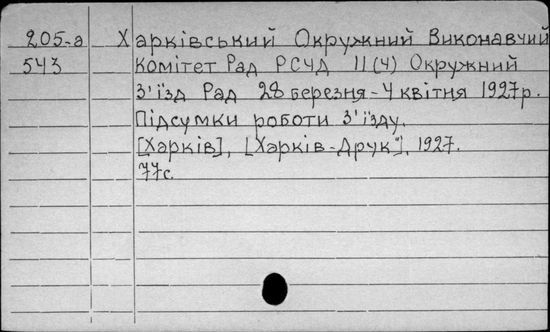 205-а Харківський Окружний Виконавчий
543 Комітет Рад РСЧД II(4) Окружний
З'їзд Рад 28 березня-4 квітня 1927р.
Підсумки роботи З'їзду.
[Харків], [Харків-Друк"], 1927.
77с.